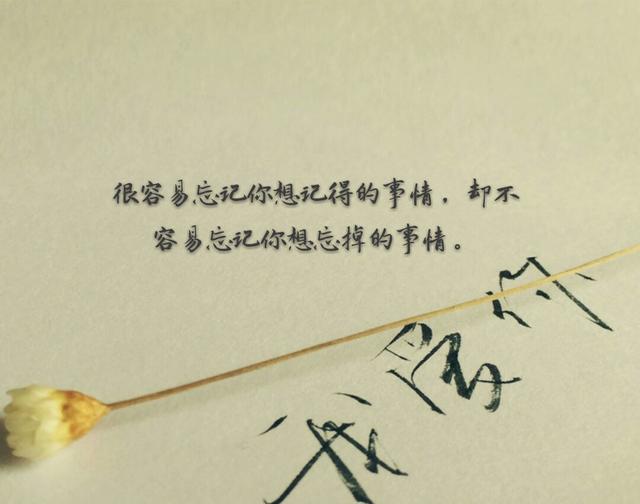 很容易忘记你想记得的事情，却不
容易忘记你想忘掉的事情。